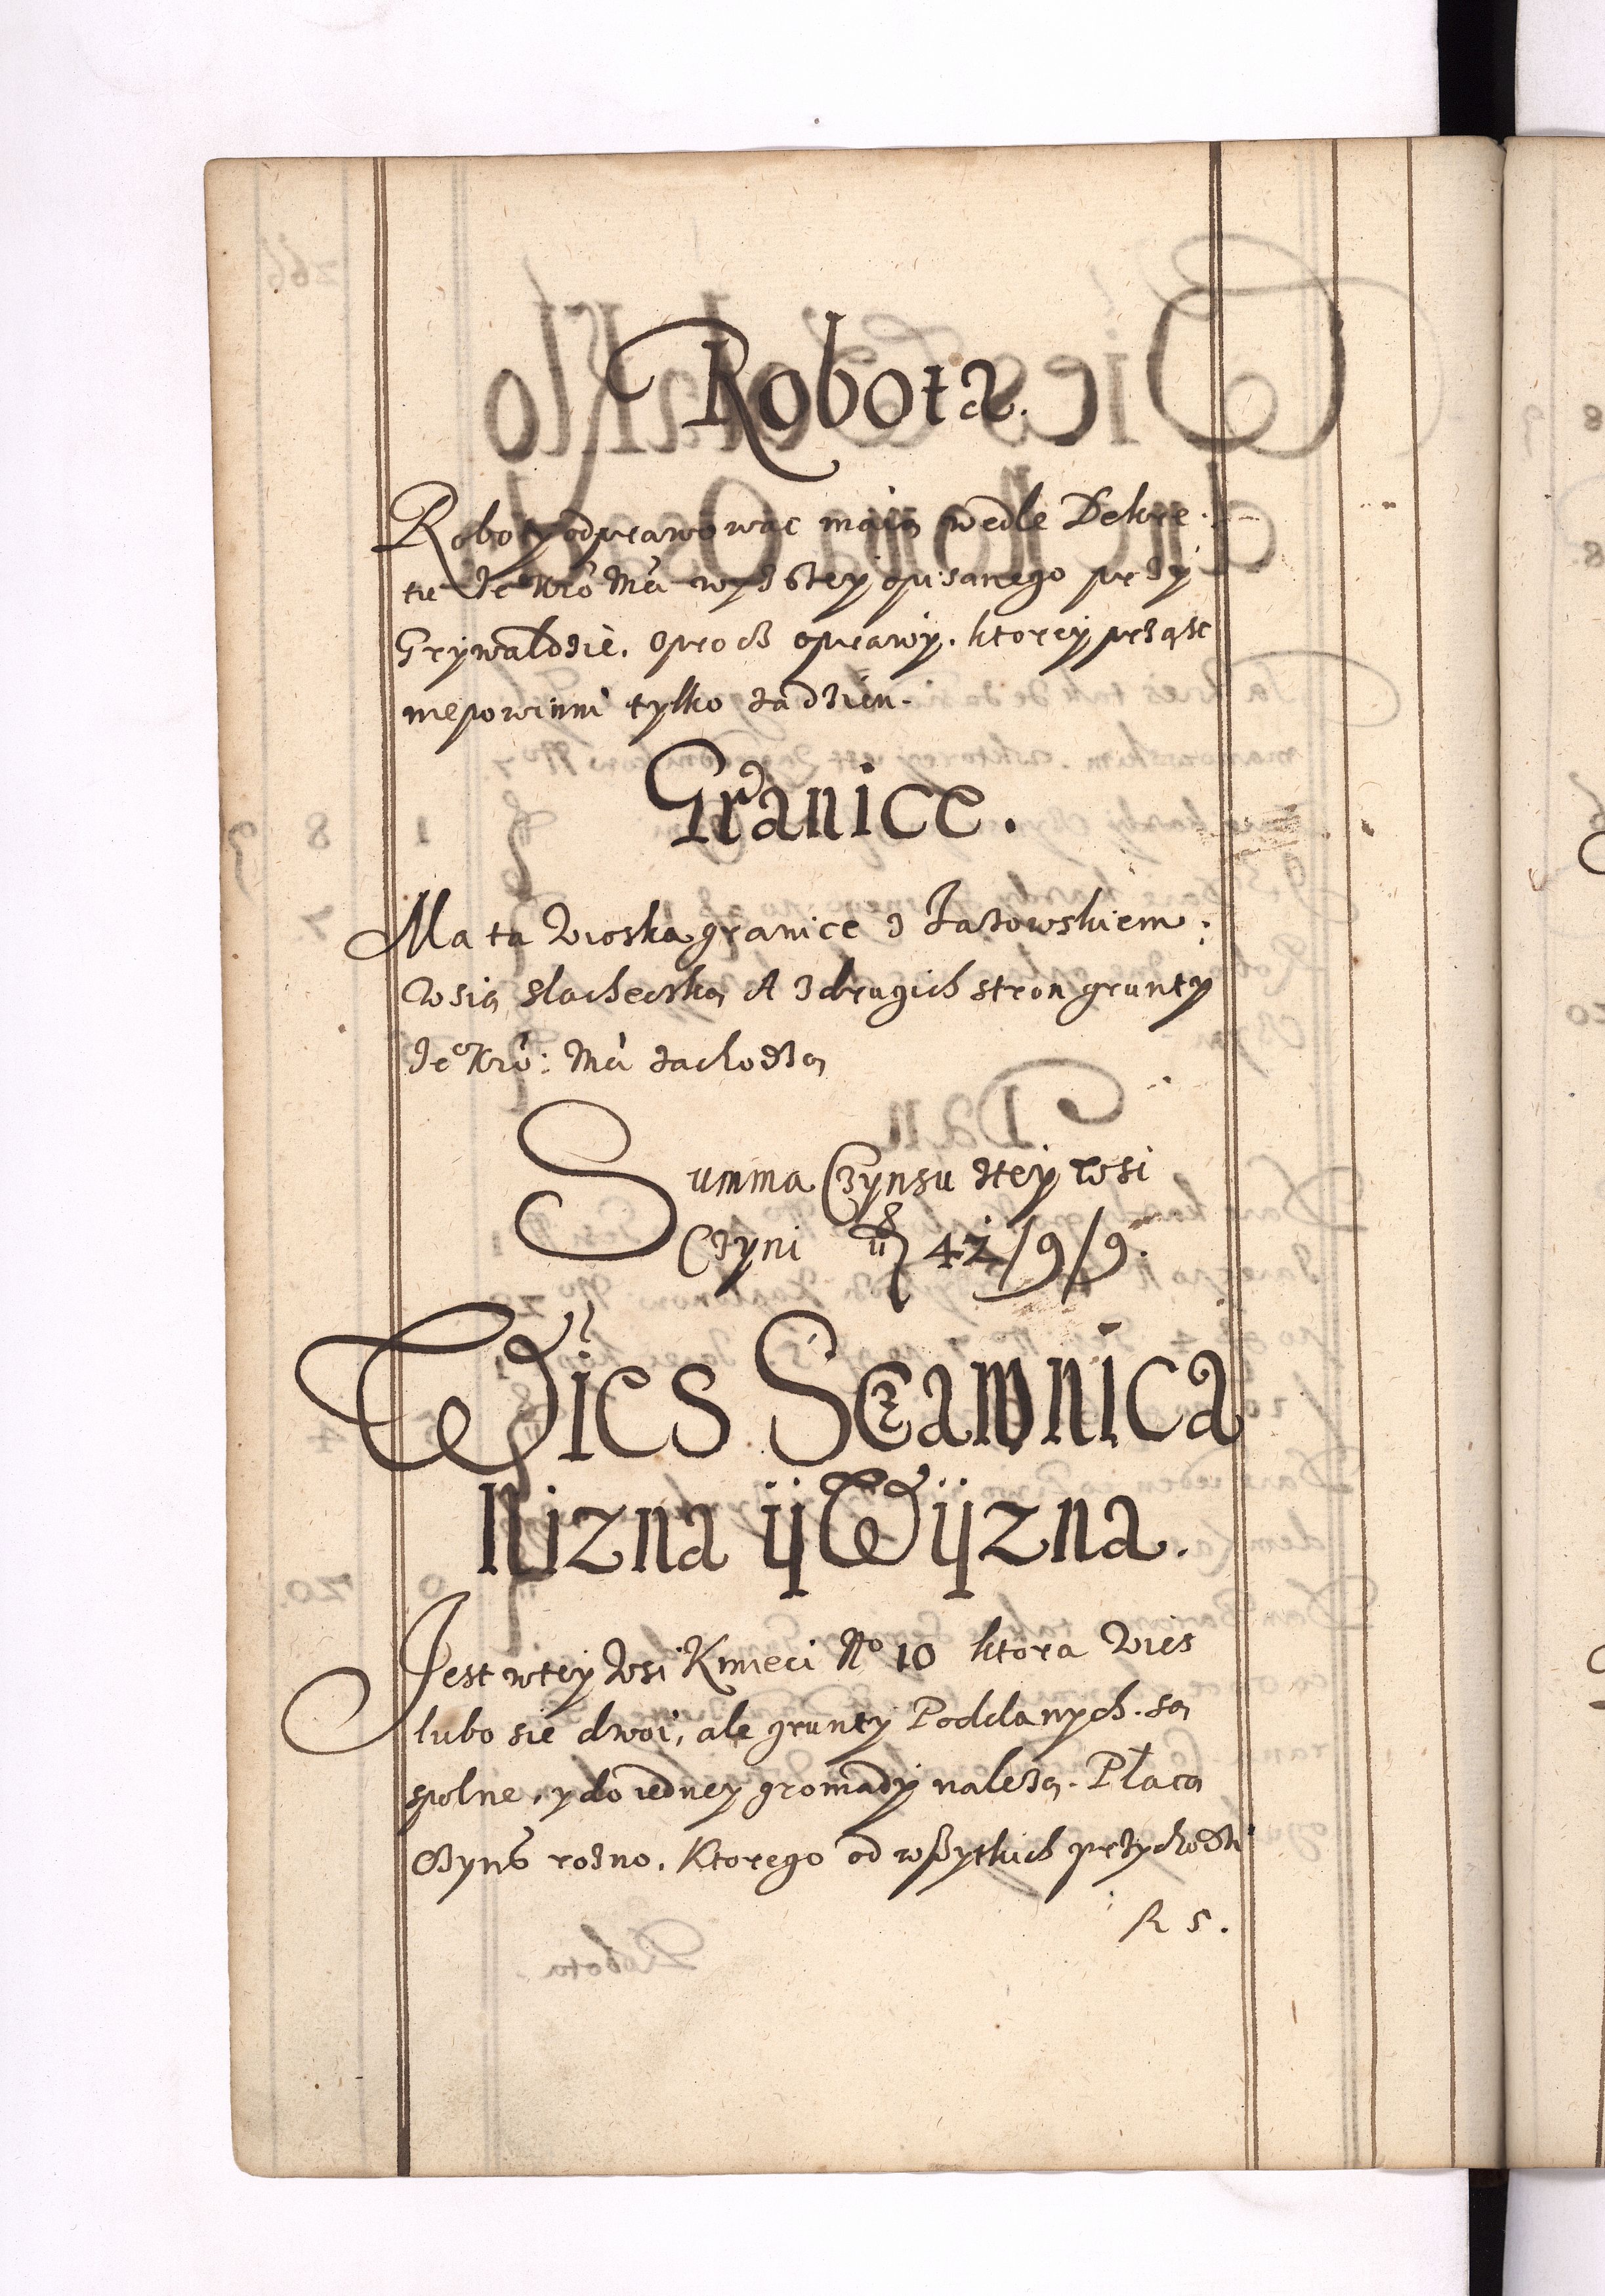 Robota.
Roboty odprawowac maią wedle Dekre
tu Je° Kro Mci wyszey opisanego przy
Grywaldzie. oprocz oprawy. ktorey prząsc
niepowinni tylko za dzien.
Granice.
Ma ta Wioska granice z Jazowskiem
Wsią slachecką A z drugich stron grunty
Je° Kro: Mci zachodzą
Summa Czynsu ztey wsi
Czyni 42/9/9.
Wies Sczawnica
Nizna ij Wijzna.
Jest wtey Wsi Kmieci No 10 ktora Wies
lubo sie dwoi, ale grunty Poddanych. są
spolne, y do iedney gromady nalezą. Płacą
Czyns rozno. Ktorego od wszytkich przychodzi